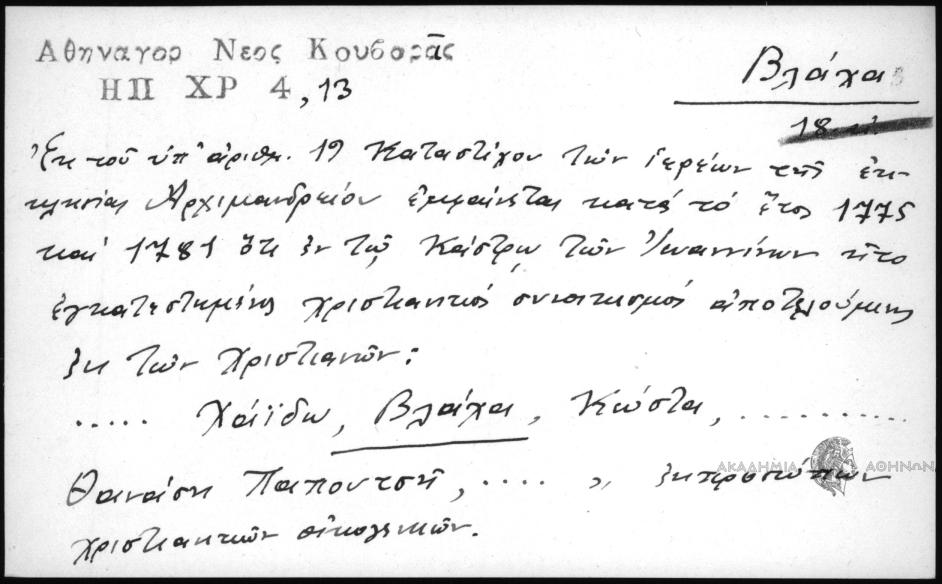 Αθηναγορ Νεος Κουβαρᾶς
ΗΠ ΧΡ 4, 13
Βλάχα
18
Ἐκ τοῦ ὑπ' ἀριθμ. 19 Καταστίχου τῶν ἱερέων τῆς ἐκ-
κλησίας Ἀρχιμανδρείου ἐμφαίνεται κατά τό ἔτος 1775
καί 1781 ὅτι ἐν τῷ Κάστρῳ τῶν Ἰωαννίνων ἦτο
ἐγκατεστημένος χριστιανικός συνοικισμός ἀποτελούμενος
ἐκ τῶν Χριστιανῶν:
..... Χάϊδω, Βλάχα, Κώστα, ..........
Θανάση Παπουτσῆ, ..... ,, ἐκπροσώπων
χριστιανικῶν οἰκογενειῶν.
ΑΚΑΔΗΜΙΑ ΑΘΗΝΩΝ